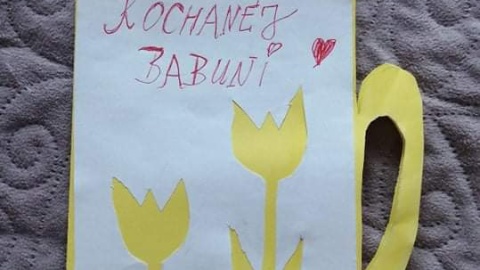 KOCHANEJ
BABUNI